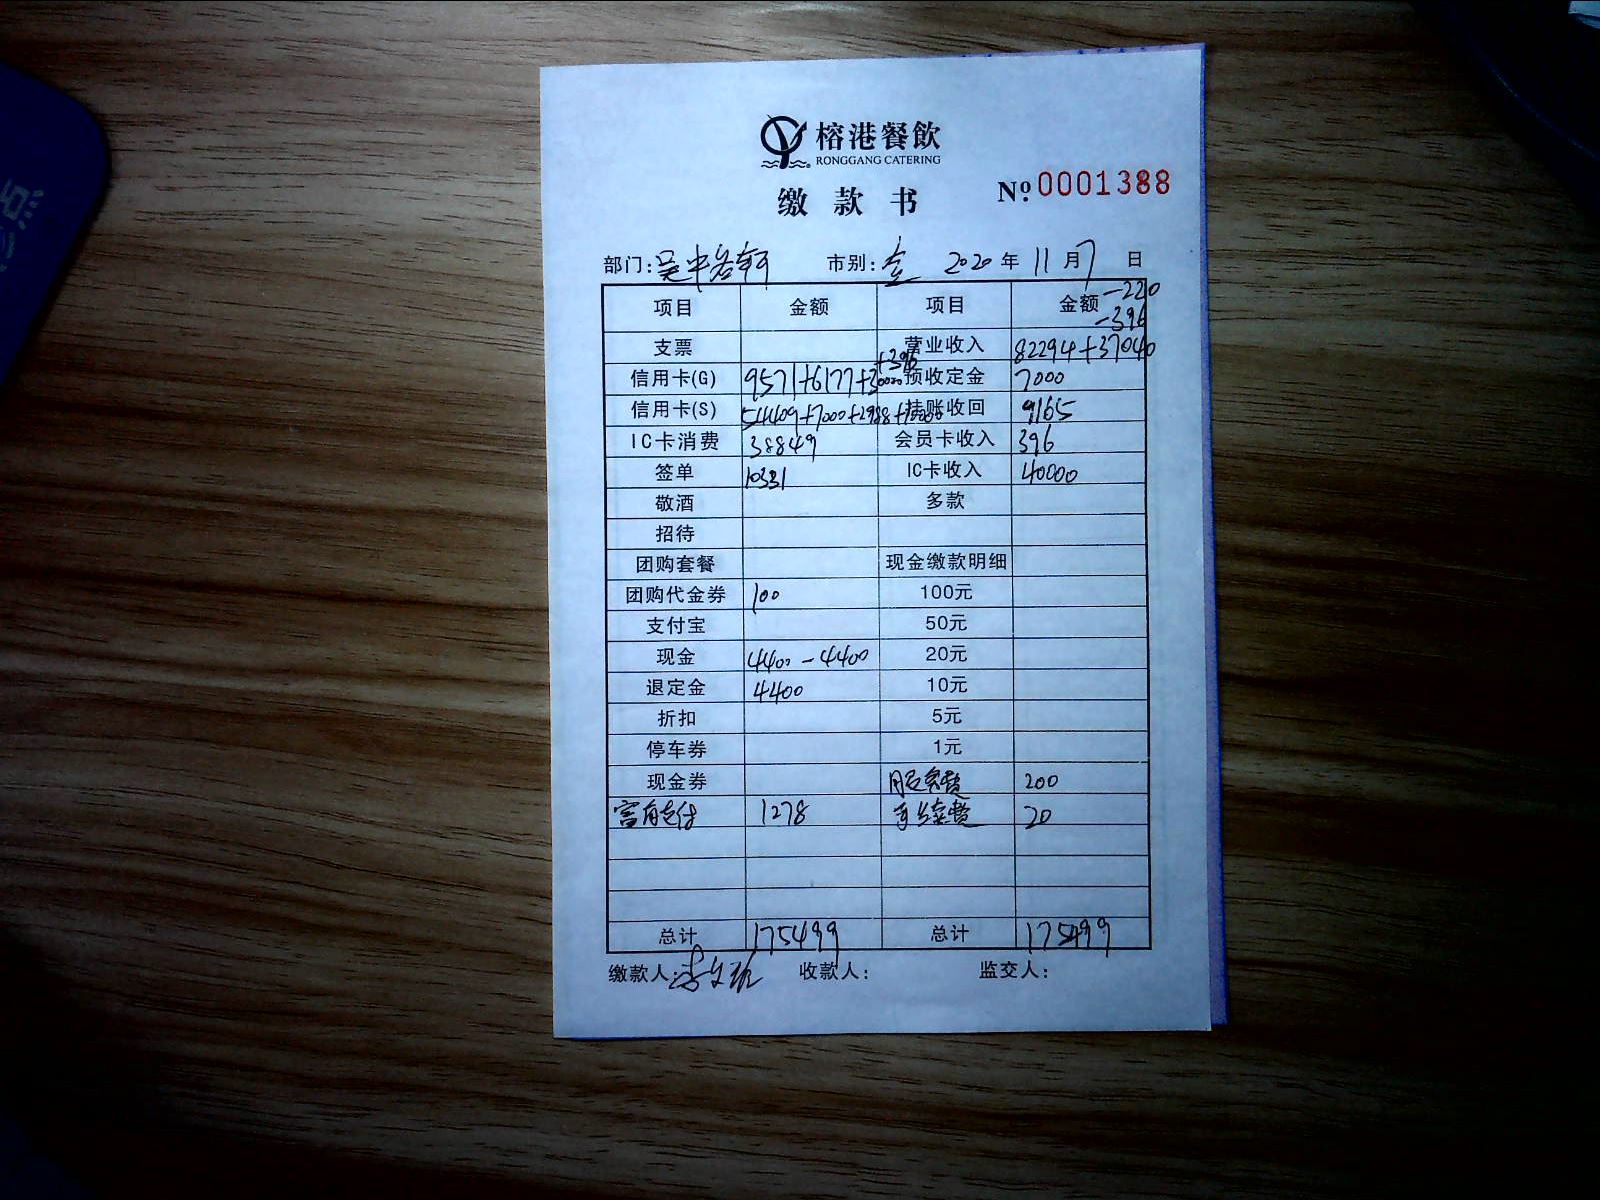 榕港餐飲
RONGGANG CATERING
缴款书 Nº 0001388
部门: 吴中 市别: 全 2020 年 11 月 7 日
项目 金额 项目 金额 -220 -396
支票 营业收入 82294+37040
信用卡(G) 9571+6177+30000+396 预收定金 7000
信用卡(S) 54409+7000+2988+10000 挂账收回 9165
IC卡消费 38849 会员卡收入 396
签单 10331 IC卡收入 40000
敬酒 多款
招待
团购套餐 现金缴款明细
团购代金券 100 100元
支付宝 50元
现金 4400-4400 20元
退定金 4400 10元
折扣 5元
停车券 1元
现金券 服务费 200
富有支付 1278 手续费 20
总计 175499 总计 175499
缴款人: 李文 收款人: 监交人: